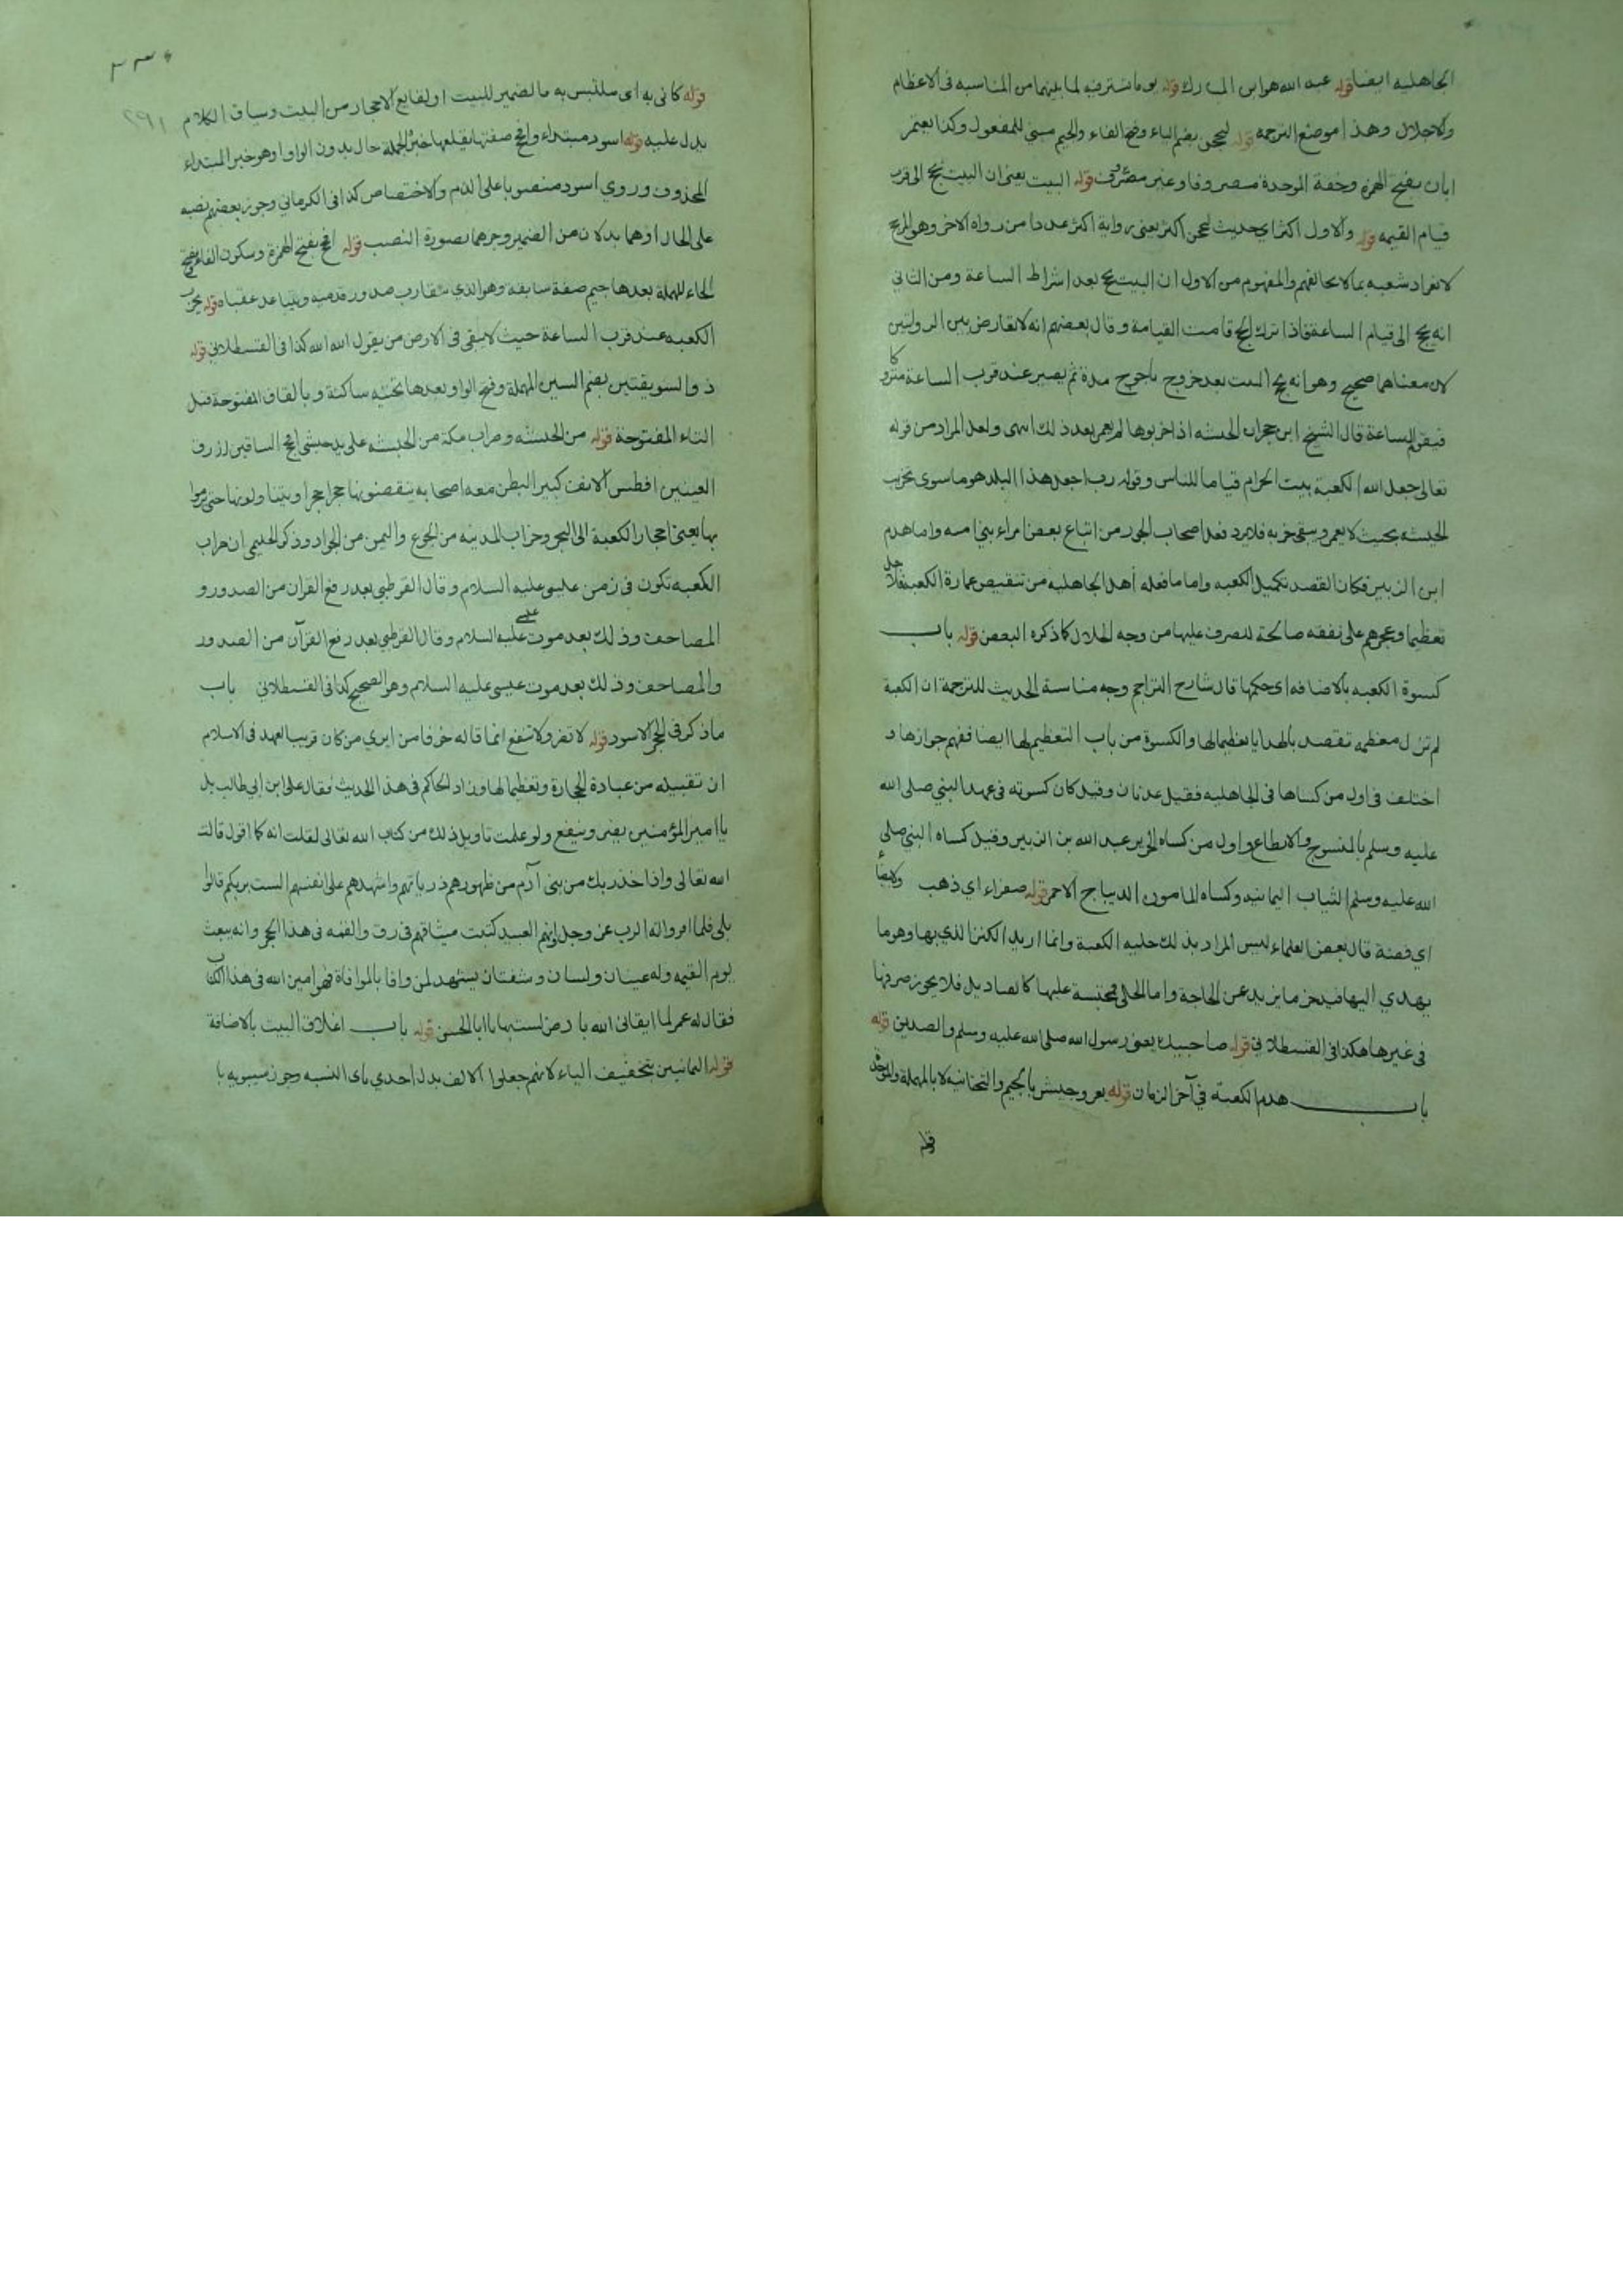 الجاهلية ايضا قوله عبد الله هو ابن المبارك قوله يوما تسترفيه لما بينهما من المناسبه في الاعظام
والاجلال وهذا موضع الترجمه قوله ليحجن بضم الياء وفتح الفاء والجيم مبني للمفعول وكذا يعتمر
ابان بفتح الهمزة وخفة الموحدة مصروفا وغير مصروف قوله البيت يعني ان البيت يحج الى قرب
قيام القيمه قوله والاول اكثر اي حديث ليحجن اكثر يعني رواية اكثر عددا من رواه الاخر وهو المرجح
لانفراد شعبه بما لا يخالفهم والمفهوم من الاول ان البيت يحج بعد اشراط الساعة ومن الثاني
انه يحج الى قيام الساعة فاذا ترك الحج قامت القيامة وقال بعضهم انه لا تعارض بين الروايتين
لان معناهما صحيح وهو انه يحج البيت بعد خروج ياجوج مدة ثم يصير عند قرب الساعة متروكا
فيقوم الساعة قال الشيخ ابن حجر ان الحبشه اذا خربوها لم يعمر بعد ذلك انتهى ولعل المراد من قوله
تعالى جعل الله الكعبة بيت الحرام قياما للناس وقوله رب اجعل هذا البلد هو ما سوى تخريب
الحبشه بحيث لا يعمر وستخربه فلا يرد فعل اصحاب الجور من اتباع بعض امراء بني اميه واما هدم
ابن الزبير فكان القصد تكميل الكعبه واما ما فعله اهل الجاهليه من تنقيص عمارة الكعبة فلاجل
تعظيما وعجزهم على نفقه صالحة للصرف عليها من وجه الحلال كما ذكره البعض قوله باب
كسوة الكعبه بالاضافه اي حكمها قال شارح التراجم وجه مناسبة الحديث للترجمة ان الكعبة
لم تزل معظمه تقصد بالهدايا تعظيما لها والكسوة من باب التعظيم لها ايضا ففهم جوازها و
اختلف في اول من كساها في الجاهليه فقيل عدنان وقيل كان كسوته في عهد النبي صلى الله
عليه وسلم بالمنسوج والانطاع واول من كساه الحرير عبد الله بن الزبير وقيل كساه النبي صلى
الله عليه وسلم الثياب اليمانيه وكساه المامون الديباج الاحمر قوله صفراء اي ذهب ولا بيضاء
اي فضة قال بعض العلماء ليس المراد بذلك حليه الكعبة وانما اريد الكنز الذي بها وهو ما
يهدي اليها فيدخر ما يزيد عن الحاجة واما الحلي فمحتبسة عليها كالقناديل فلا يجوز صرفها
في غيرها هكذا في القسطلاني قوله صاحبيك يعني رسول الله صلى الله عليه وسلم والصديق قوله
باب هدم الكعبة في آخر الزمان قوله يغزو جيش بالجيم والتحتانيه لا بالمهملة والموحدة
قوله
٢٩١
قوله كاني به اي ملتبس به والضمير للبيت او لقالع الاحجار من البيت وسياق الكلام
يدل عليه قوله اسود مبتداء وافحج صفتها يقلعها خبر الجملة حال بدون الواو او هو خبر المبتداء
المحذوف وروي اسود منصوبا على الذم والاختصاص كذا في الكرماني وجوز بعضهم نصبه
على الحال او هما بدلان من الضمير وجرهما بصورة النصب قوله افحج بفتح الهمزة وسكون الفاء وفتح
الحاء المهملة بعدها جيم صفة سابقه وهو الذي يتقارب صدور قدميه ويتباعد عقباه قوله يخرب
الكعبه عند قرب الساعة حيث لا يبقى في الارض من يقول الله الله كذا في القسطلاني قوله
ذو السويقتين بضم السين المهملة وفتح الواو بعدها تحتيه ساكنة وبالقاف المفتوحة قبل
التاء المفتوحة قوله من الحبشه وخراب مكة من الحبشه على يد حبشي افحج الساقين ازرق
العينين افطس الانف كبير البطن معه اصحابه ينقضونها حجرا حجرا ويتناولونها حتى يرموا
بها يعني احجار الكعبة الى البحر وخراب المدينه من الجوع واليمن من الجراد وذكر الحليمي ان خراب
الكعبه تكون في زمن عليه السلام وقال القرطبي بعد رفع القران من الصدور و
المصاحف وذلك بعد موت عيسى عليه السلام وقال القرطبي بعد رفع القرآن من الصدور
والمصاحف وذلك بعد موت عيسى عليه السلام وهو الصحيح كذا في القسطلاني باب
ما ذكر في الحجر الاسود قوله لا تضر ولا تنفع انما قاله خوفا من ان يري من كان قريب العهد في الاسلام
ان تقبيله من عبادة الحجارة وتعظيما لها وزاد الحاكم في هذا الحديث فقال على ابن ابي طالب بل
يا امير المؤمنين يضر وينفع ولو علمت تاويل ذلك من كتاب الله تعالى لقلت انه كما اقول قالت
الله تعالى واذ اخذ ربك من بني آدم من ظهورهم ذرياتهم واشهدهم على انفسهم الست بربكم قالوا
بلى فلما اقروا انه الرب عز وجل وانهم العبيد كتبت ميثاقهم في رق والقمه في هذا الحجر وانه يبعث
يوم القيمه وله عينان ولسان وشفتان يشهد لمن وافا بالموافاة فهو امين الله في هذا الكتاب
فقال له عمر لا ابقاني الله بارض لست بها يا ابا الحسن قوله باب اغلاق البيت بالاضافة
قوله اليمانيين بتخفيف الياء لانهم جعلوا الالف بدل احدي ياي النسبه وجوز سيبويه با